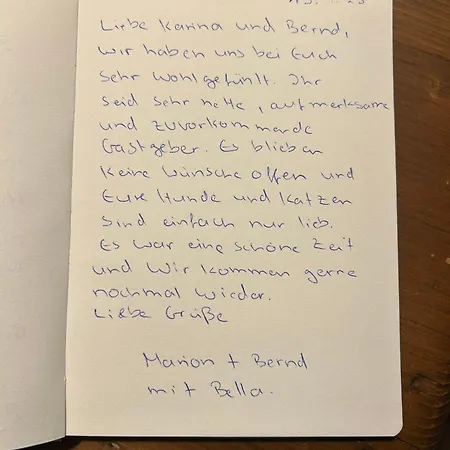 Liebe Karina und Bernd,
wir haben uns bei Euch
sehr wohlgefühlt. Ihr
seid sehr nette, aufmerksame
und zuvorkommende
Gastgeber. Es blieben
keine Wünsche offen und
Eure Hunde und Katzen
sind einfach nur lieb.
Es war eine schöne Zeit
und wir kommen gerne
nochmal wieder.
Liebe Grüße
Marion + Bernd
mit Bella.